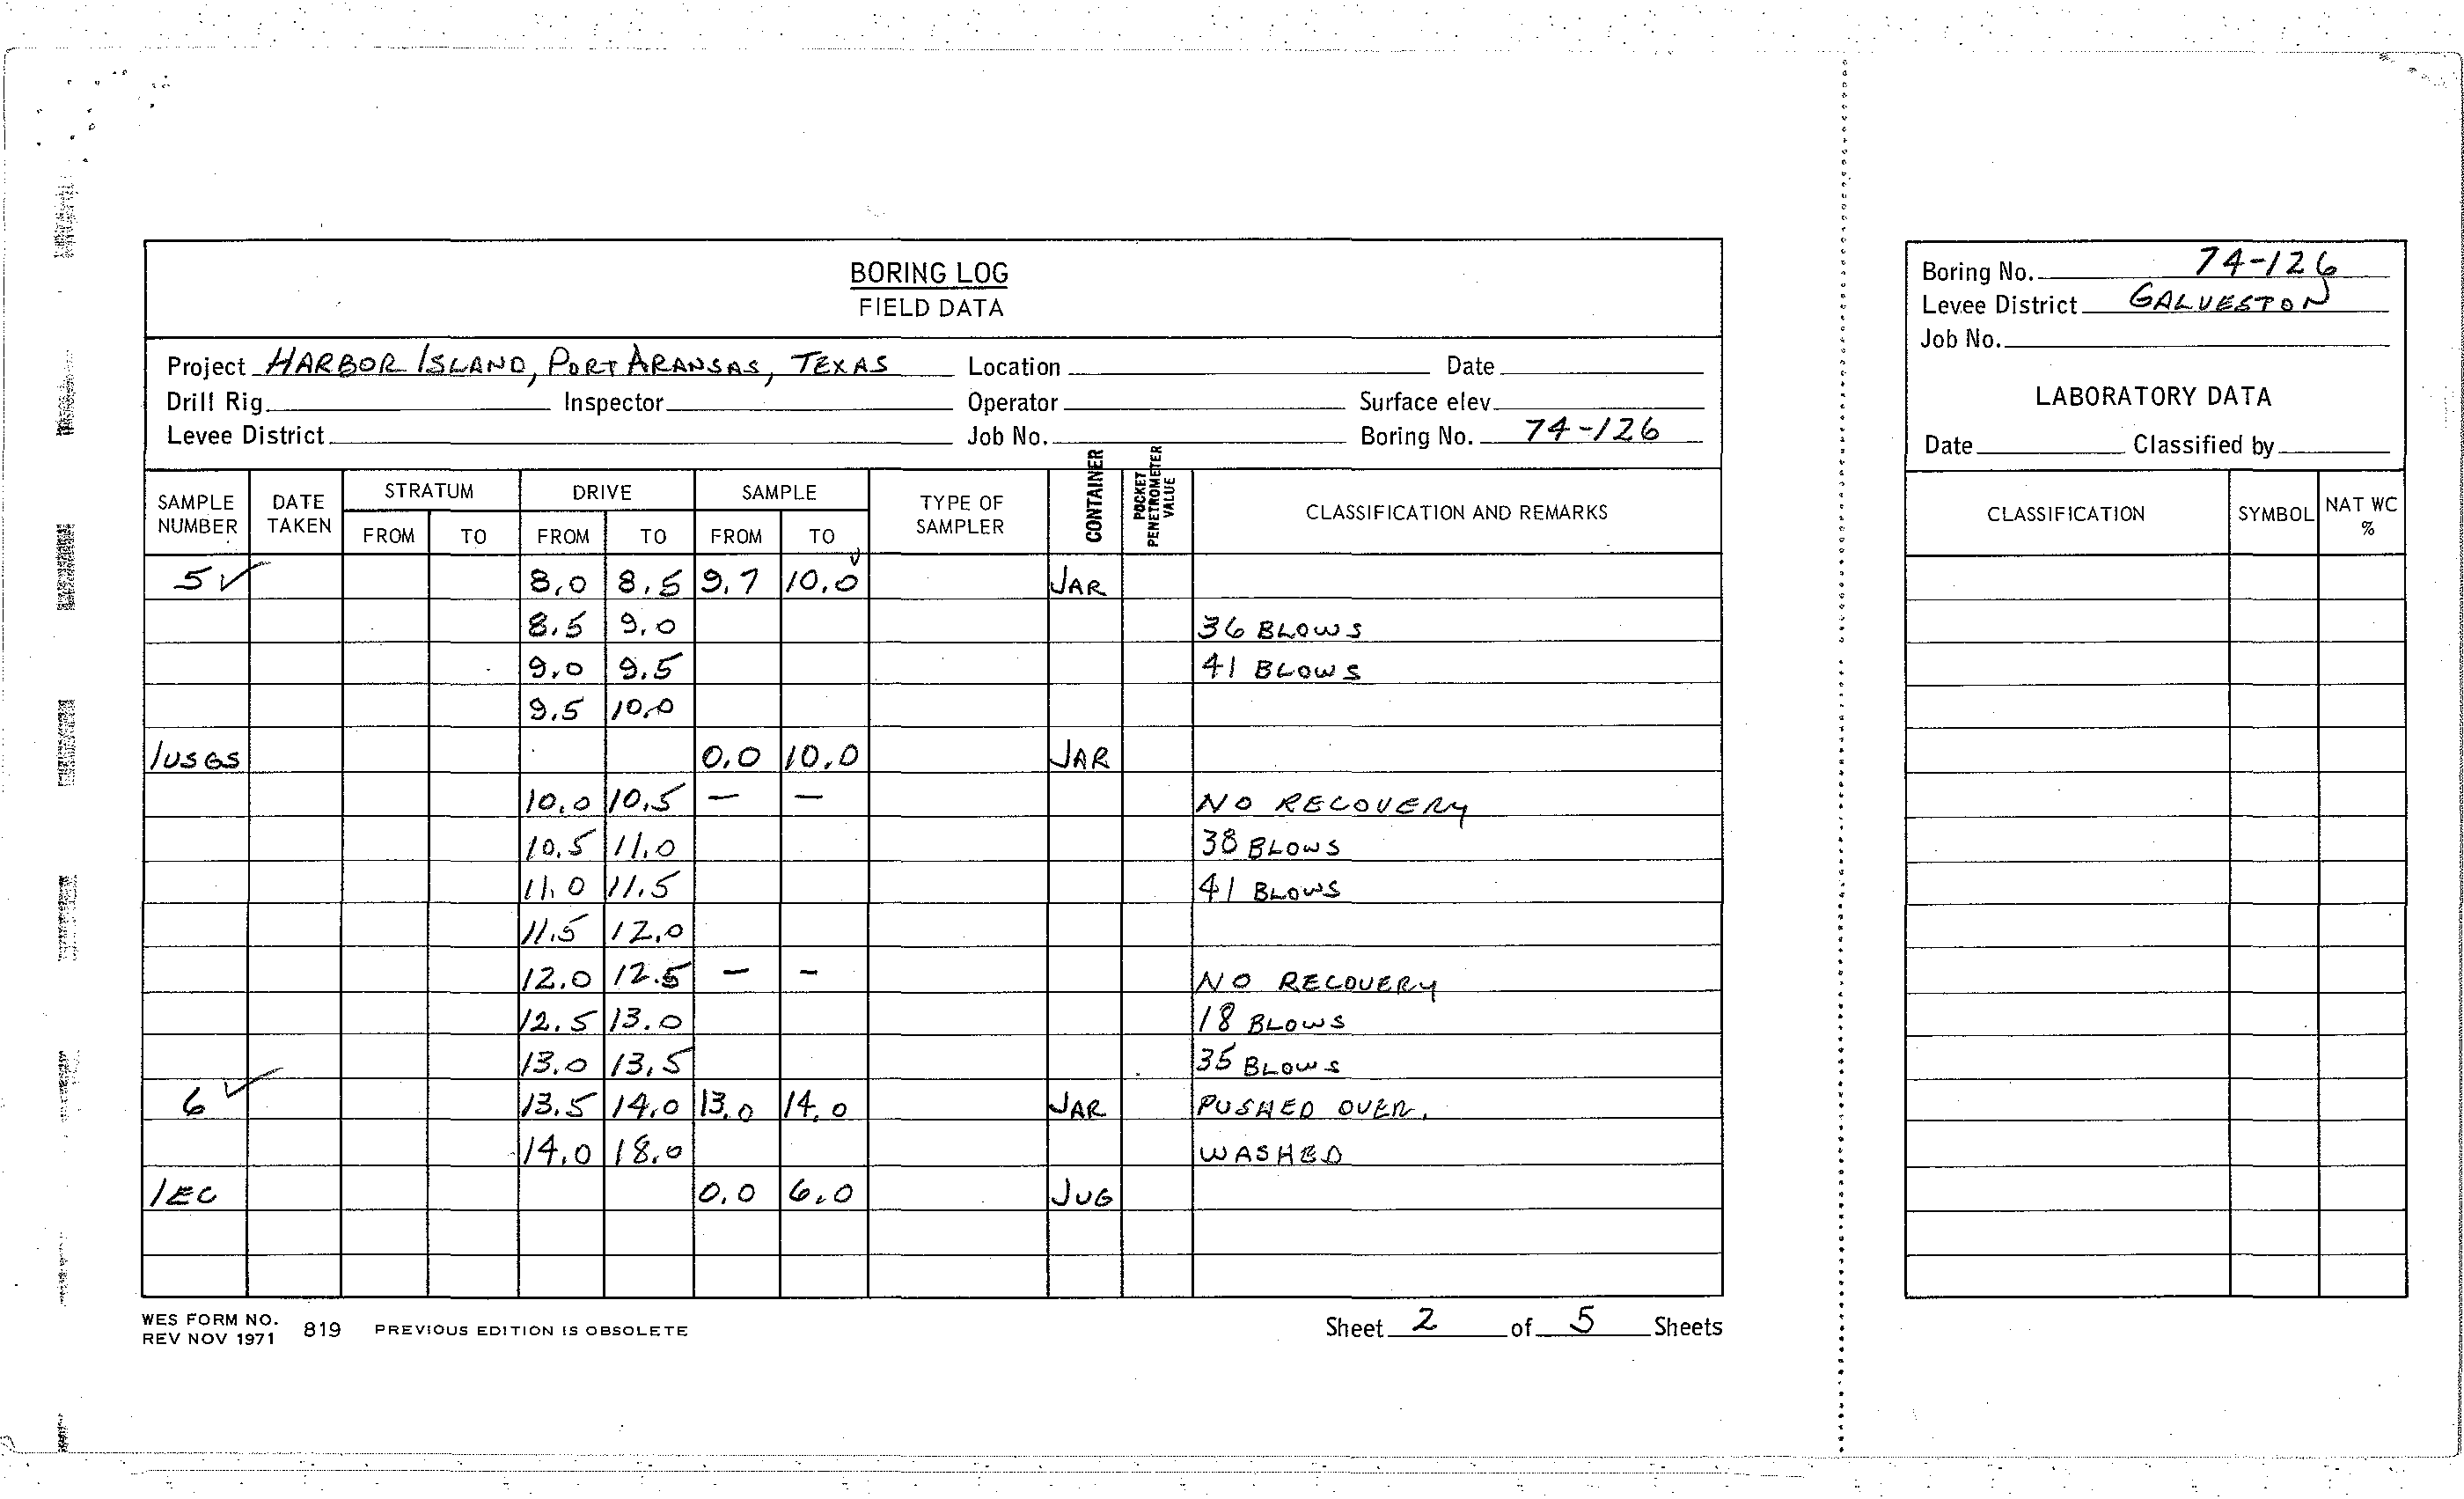 BORING LOG
FIELD DATA
Project HARBOR ISLAND, PORT ARANSAS, TEXAS Location Date
Drill Rig Inspector Operator Surface elev.
Levee District Job No. Boring No. 74-126
SAMPLE NUMBER DATE TAKEN STRATUM FROM TO DRIVE FROM TO SAMPLE FROM TO TYPE OF SAMPLER CONTAINER POCKET PENETROMETER VALUE CLASSIFICATION AND REMARKS
5 ✓ 8.0 8.5 9.7 10.0 JAR
8.5 9.0 36 BLOWS
9.0 9.5 41 BLOWS
9.5 10.0
1USGS 0.0 10.0 JAR
10.0 10.5 — — NO RECOVERY
10.5 11.0 38 BLOWS
11.0 11.5 41 BLOWS
11.5 12.0
12.0 12.5 — — NO RECOVERY
12.5 13.0 18 BLOWS
13.0 13.5 35 BLOWS
6 ✓ 13.5 14.0 13.0 14.0 JAR PUSHED OVER.
14.0 18.0 WASHED
1EC 0.0 6.0 JUG
WES FORM NO. 819 PREVIOUS EDITION IS OBSOLETE
REV NOV 1971
Sheet 2 of 5 Sheets
Boring No. 74-126
Levee District GALVESTON
Job No.
LABORATORY DATA
Date Classified by
CLASSIFICATION SYMBOL NAT WC %